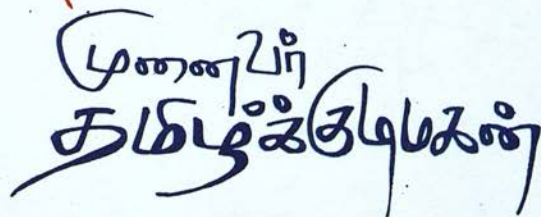 முனைவர்
தமிழ்க்குடிமகன்